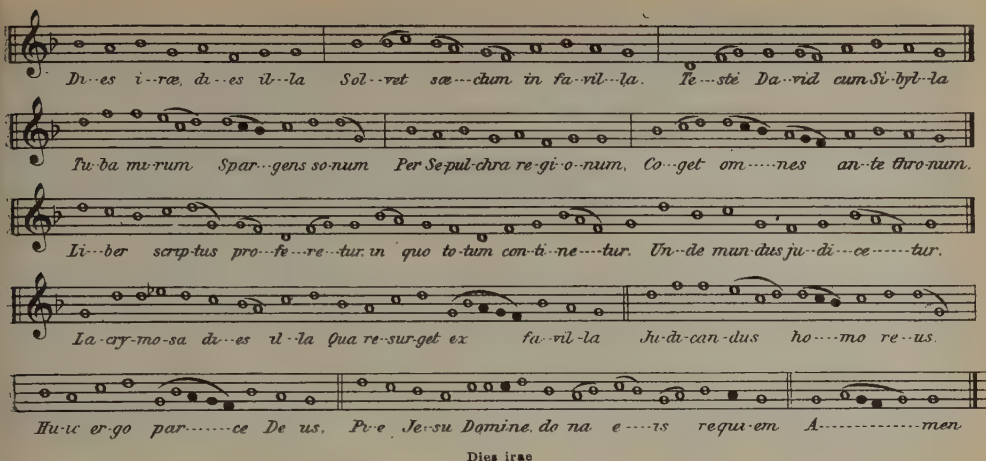 Di--es i--ræ, di--es il--la Sol--vet sæ---clum in fa--vil--la. Te---ste Da--vid cum Si--byl--la
Tu-ba mi-rum Spar---gens so-num Per Se-pul-chra re-gi-o-num, Co--get om----nes an--te thro-num.
Li--ber scrip-tus pro--fe--re--tur. in quo to-tum con-ti-ne---tur. Un--de mun-dus ju--di--ce----tur.
La-cry-mo-sa di--es il--la Qua re-sur-get ex fa-vil-la Ju-di-can-dus ho----mo re--us.
Hu-ic er-go par-----ce De us. Pi-e Je-su Domine. do na e----is requi-em A----------men
Dies irae